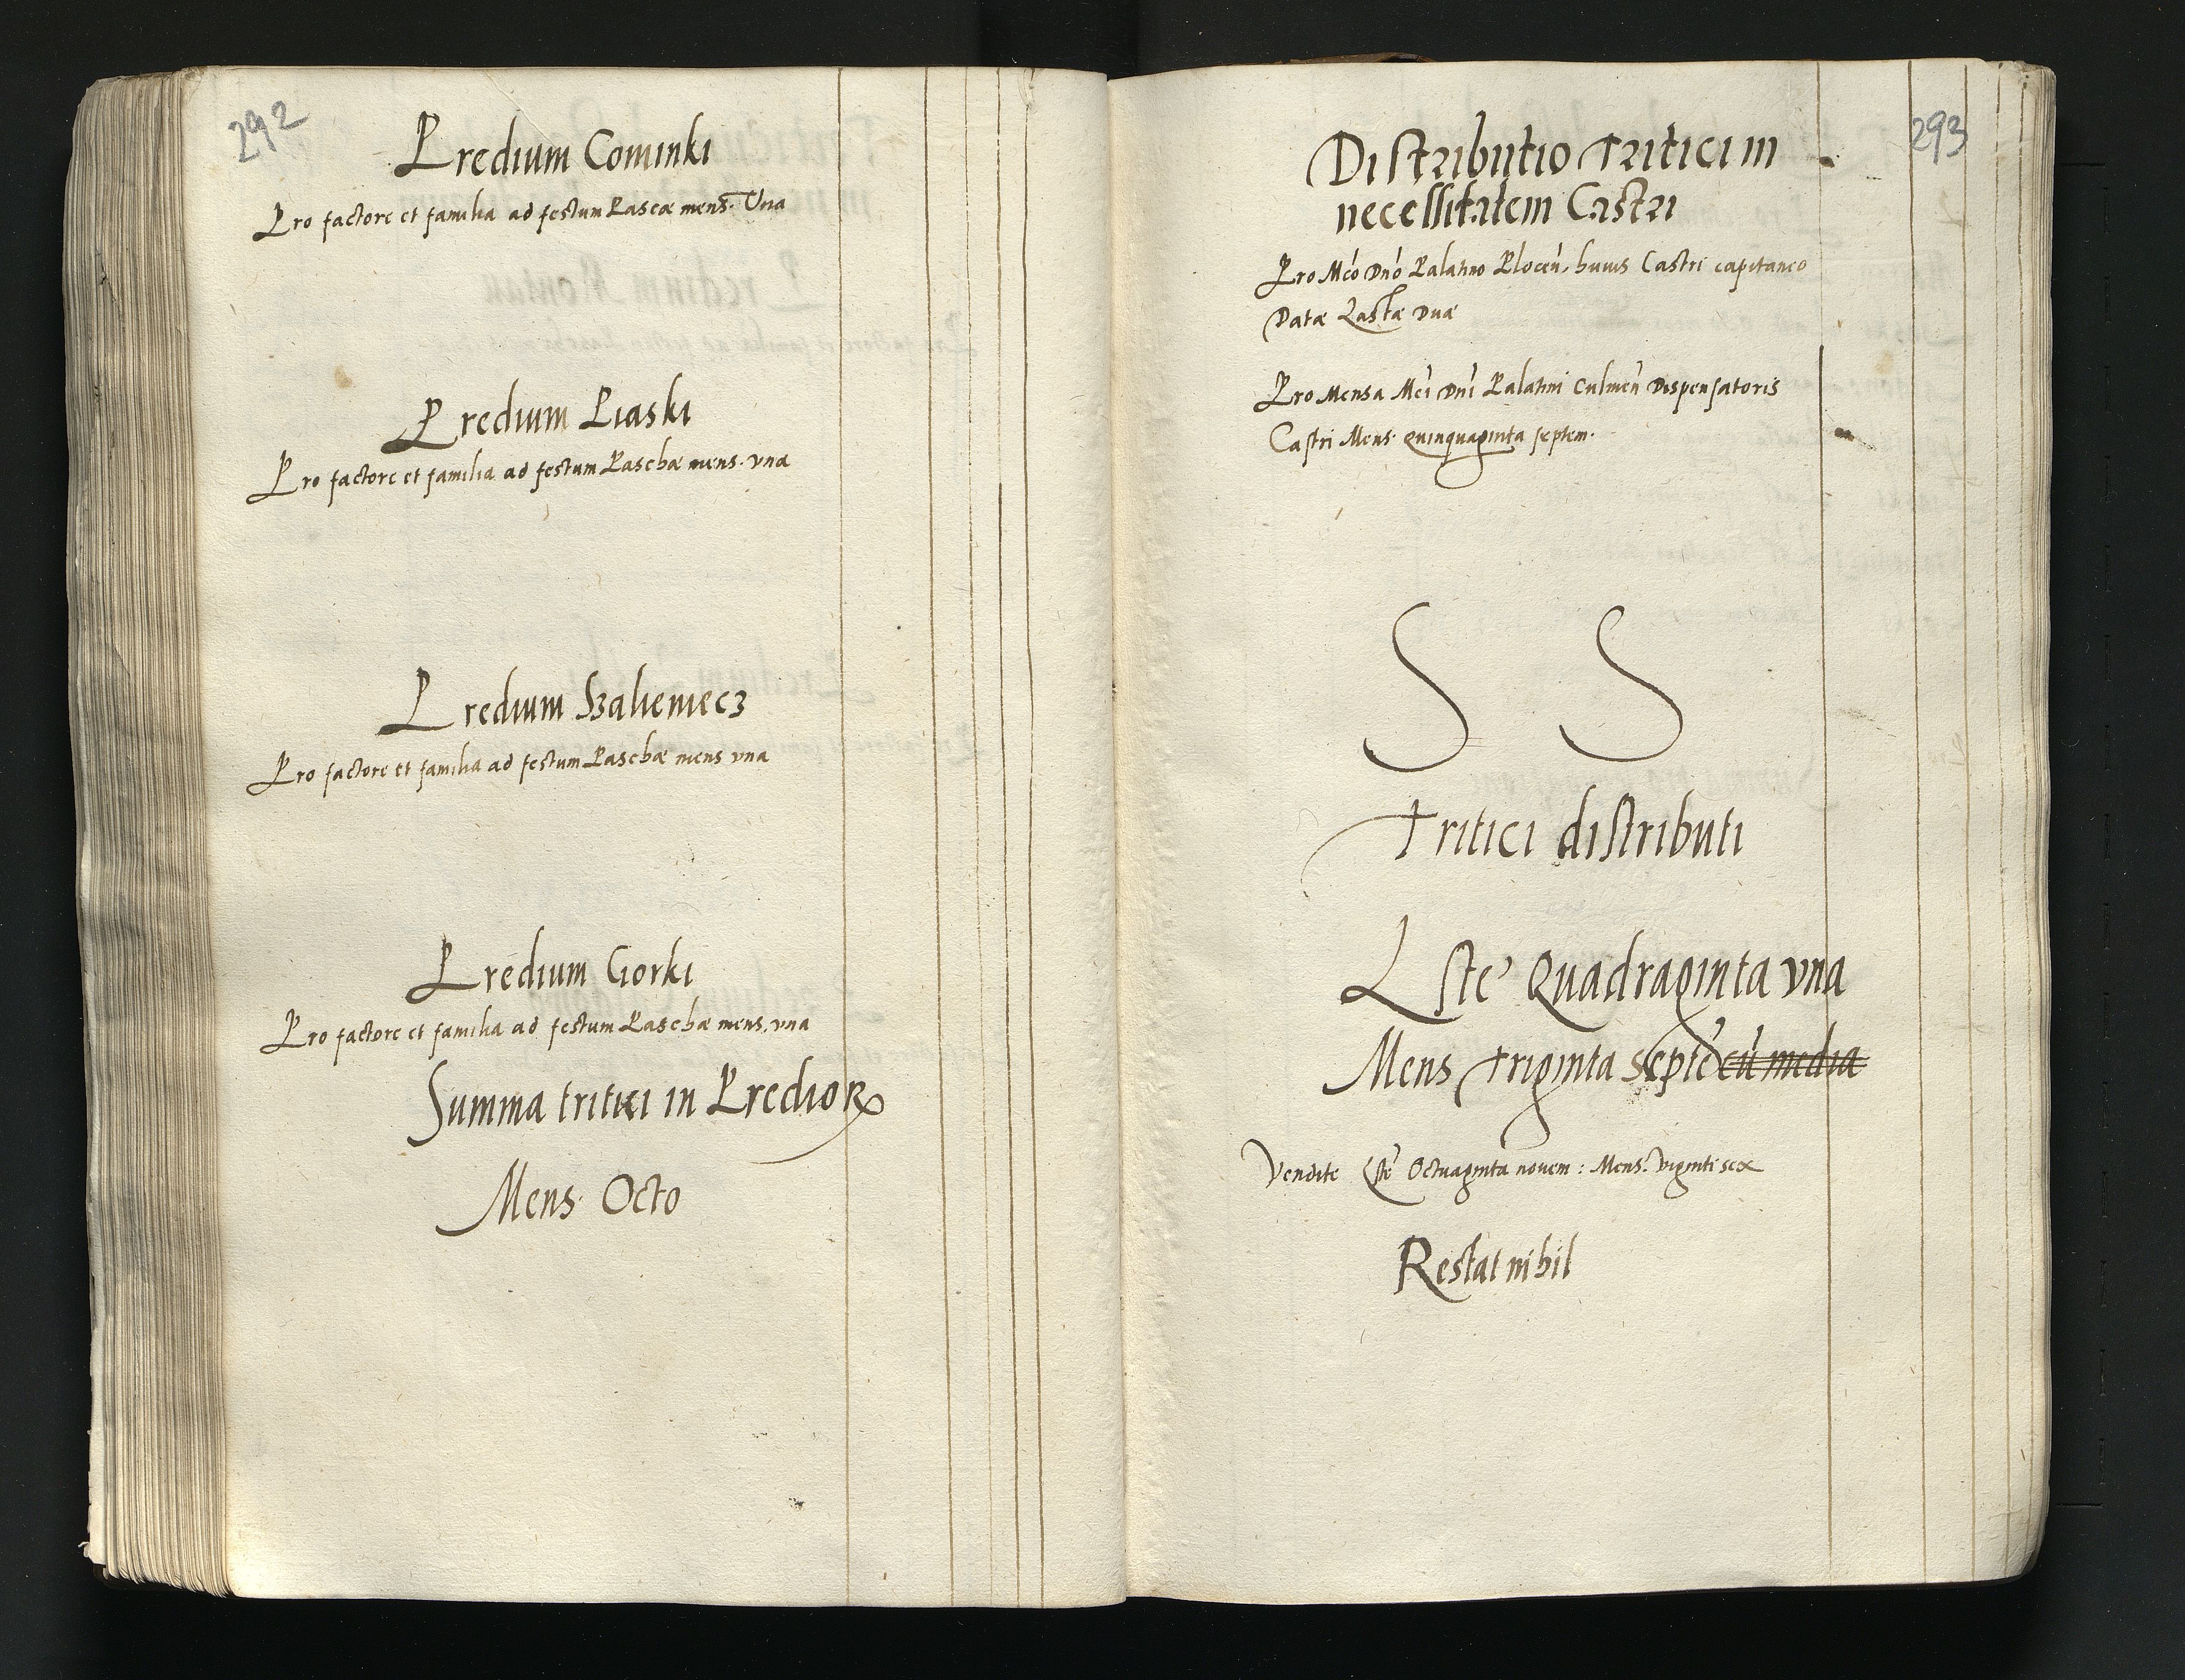 292
Predium Cominki
Pro factore et familia ad festum Pascæ mens. Vna
Predium Piaski
Pro factore et familia ad festum Paschæ mens. vna
Predium Szalieniecz
Pro factore et familia ad festum Paschæ mens vna
Predium Gorki
Pro factore et familia ad festum Paschæ mens. vna
Summa tritici in Predioꝝ
Mens. Octo
293
Distributio Tritici in
necessitatem Castri
Pro Mco Dno Palatino Plocen. huius Castri capitaneo
Datæ Lastæ Duæ
Pro Mensa Mci Dni Palatini Culmen Dispensatoris
Castri Mens. quinquaginta septem.
S S
Tritici distributi
Lste Quadraginta vna
Mens Triginta septe cu media
Vendite Lste Octuaginta nouem: Mens. viginti sex
Restat nihil